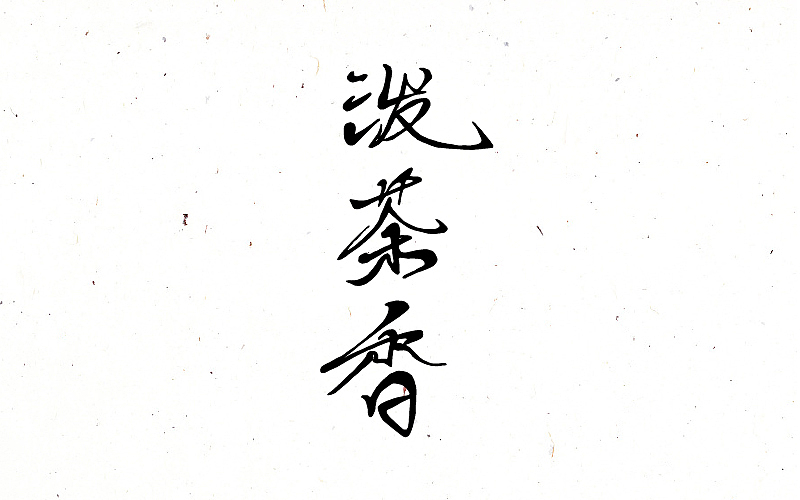 泼茶香